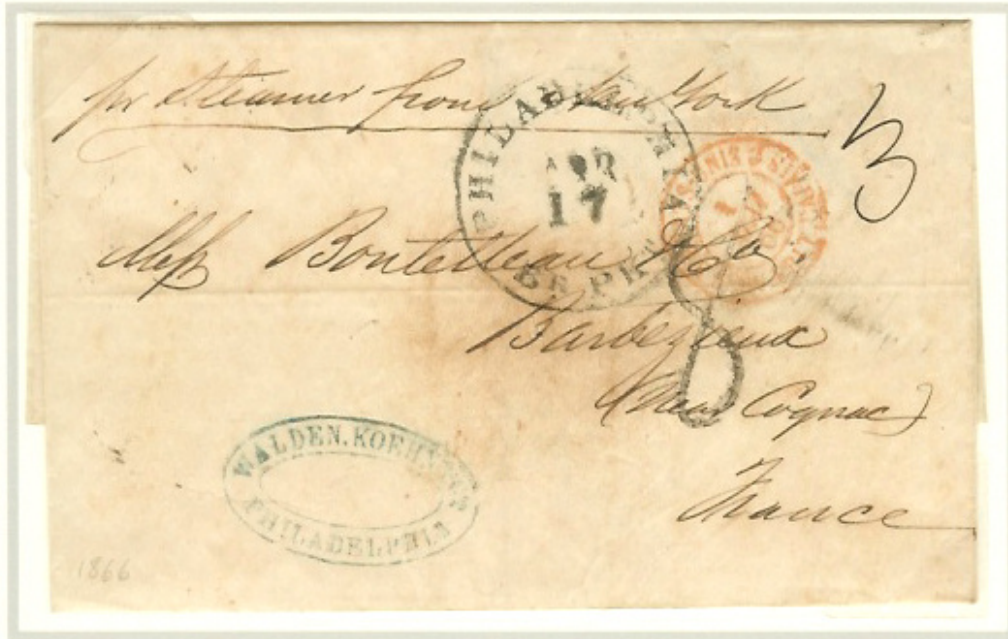 pr Steamer from New York
3
PHILADELPHIA
APR
17
Br. PKT
Mess Boutelleau & Co
Barbezieux
8
(Near Cognac)
France
WALDEN. KOEHN
PHILADELPHIA
1866